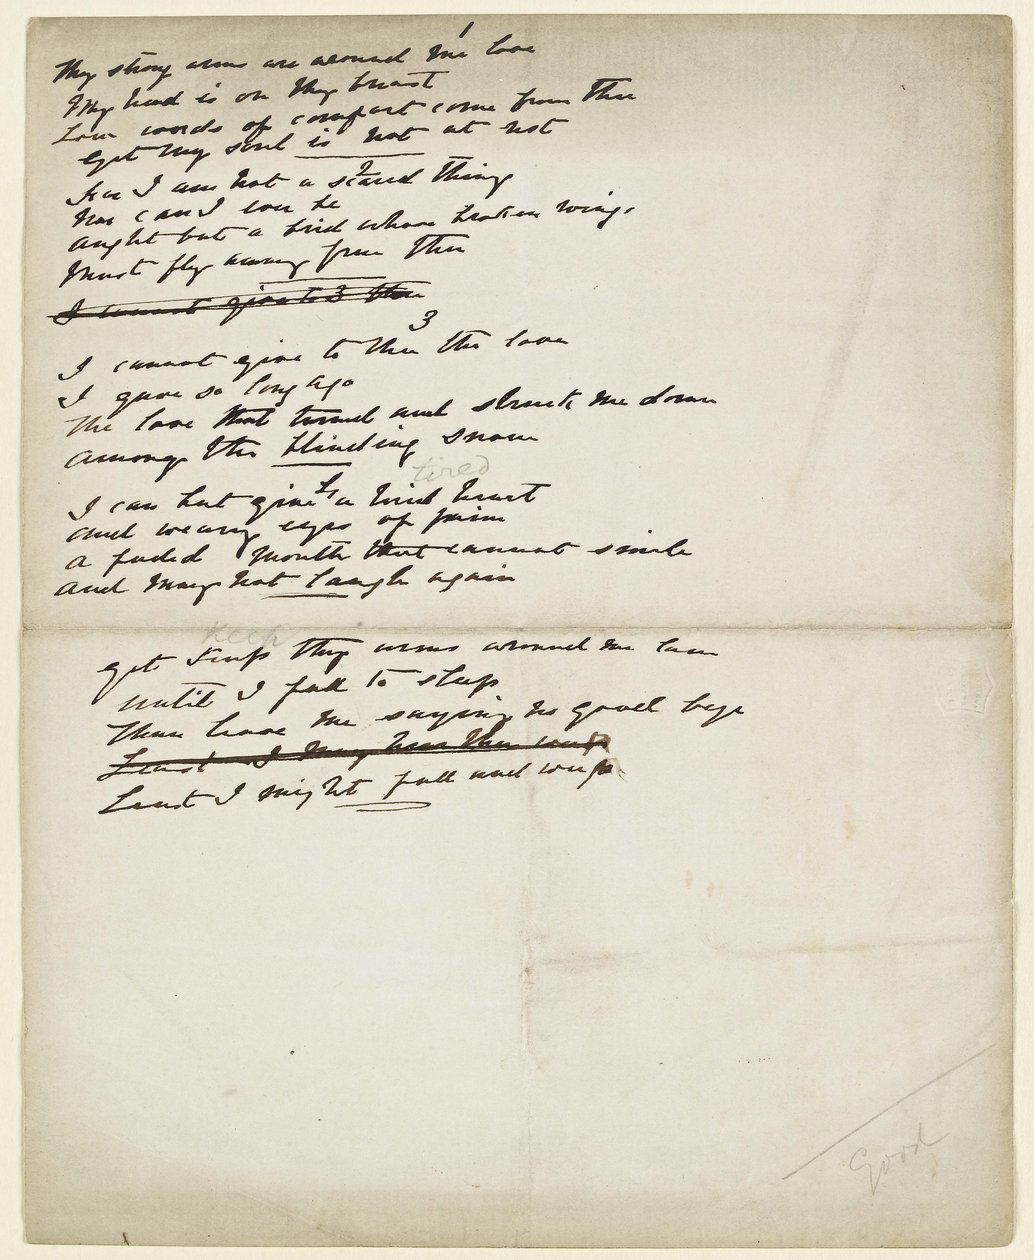 1
Thy strong arms are around me love
My head is on thy breast
Low words of comfort come from thee
Yet my soul is not at rest
2
For I am not a scared thing
Nor can I ever be
aught but a bird whose broken wing
Must fly away from thee
I cannot give to 3 thee
3
I cannot give to thee the love
I gave so long ago
The love that turned and struck me down
Among the blinding snow
tired
4
I can but give a tired heart
and weary eyes of pain
a faded mouth that cannot smile
and may not laugh again
keep
yet keep thy arms around me love
until I fall to sleep
Then leave me saying no good bye
Least I may hear thee weep
Least I might fall and weep.
Good